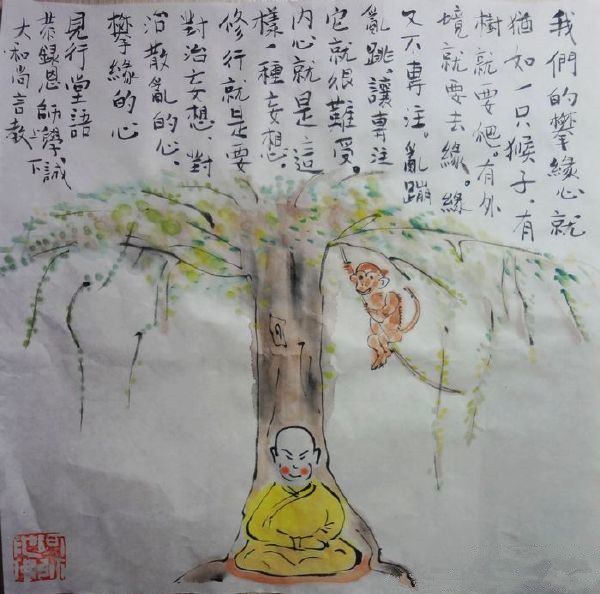 我們的攀緣心就
猶如一只猴子，有
樹就要爬。有外
境就要去緣。緣
又不專注。亂蹦
亂跳。讓專注
它就很難受。
内心就是這
樣一種妄想。
修行就是要
對治妄想，對
治散亂的心、
攀緣的心
見行堂語
恭錄恩師上學下誠
大和尚言教